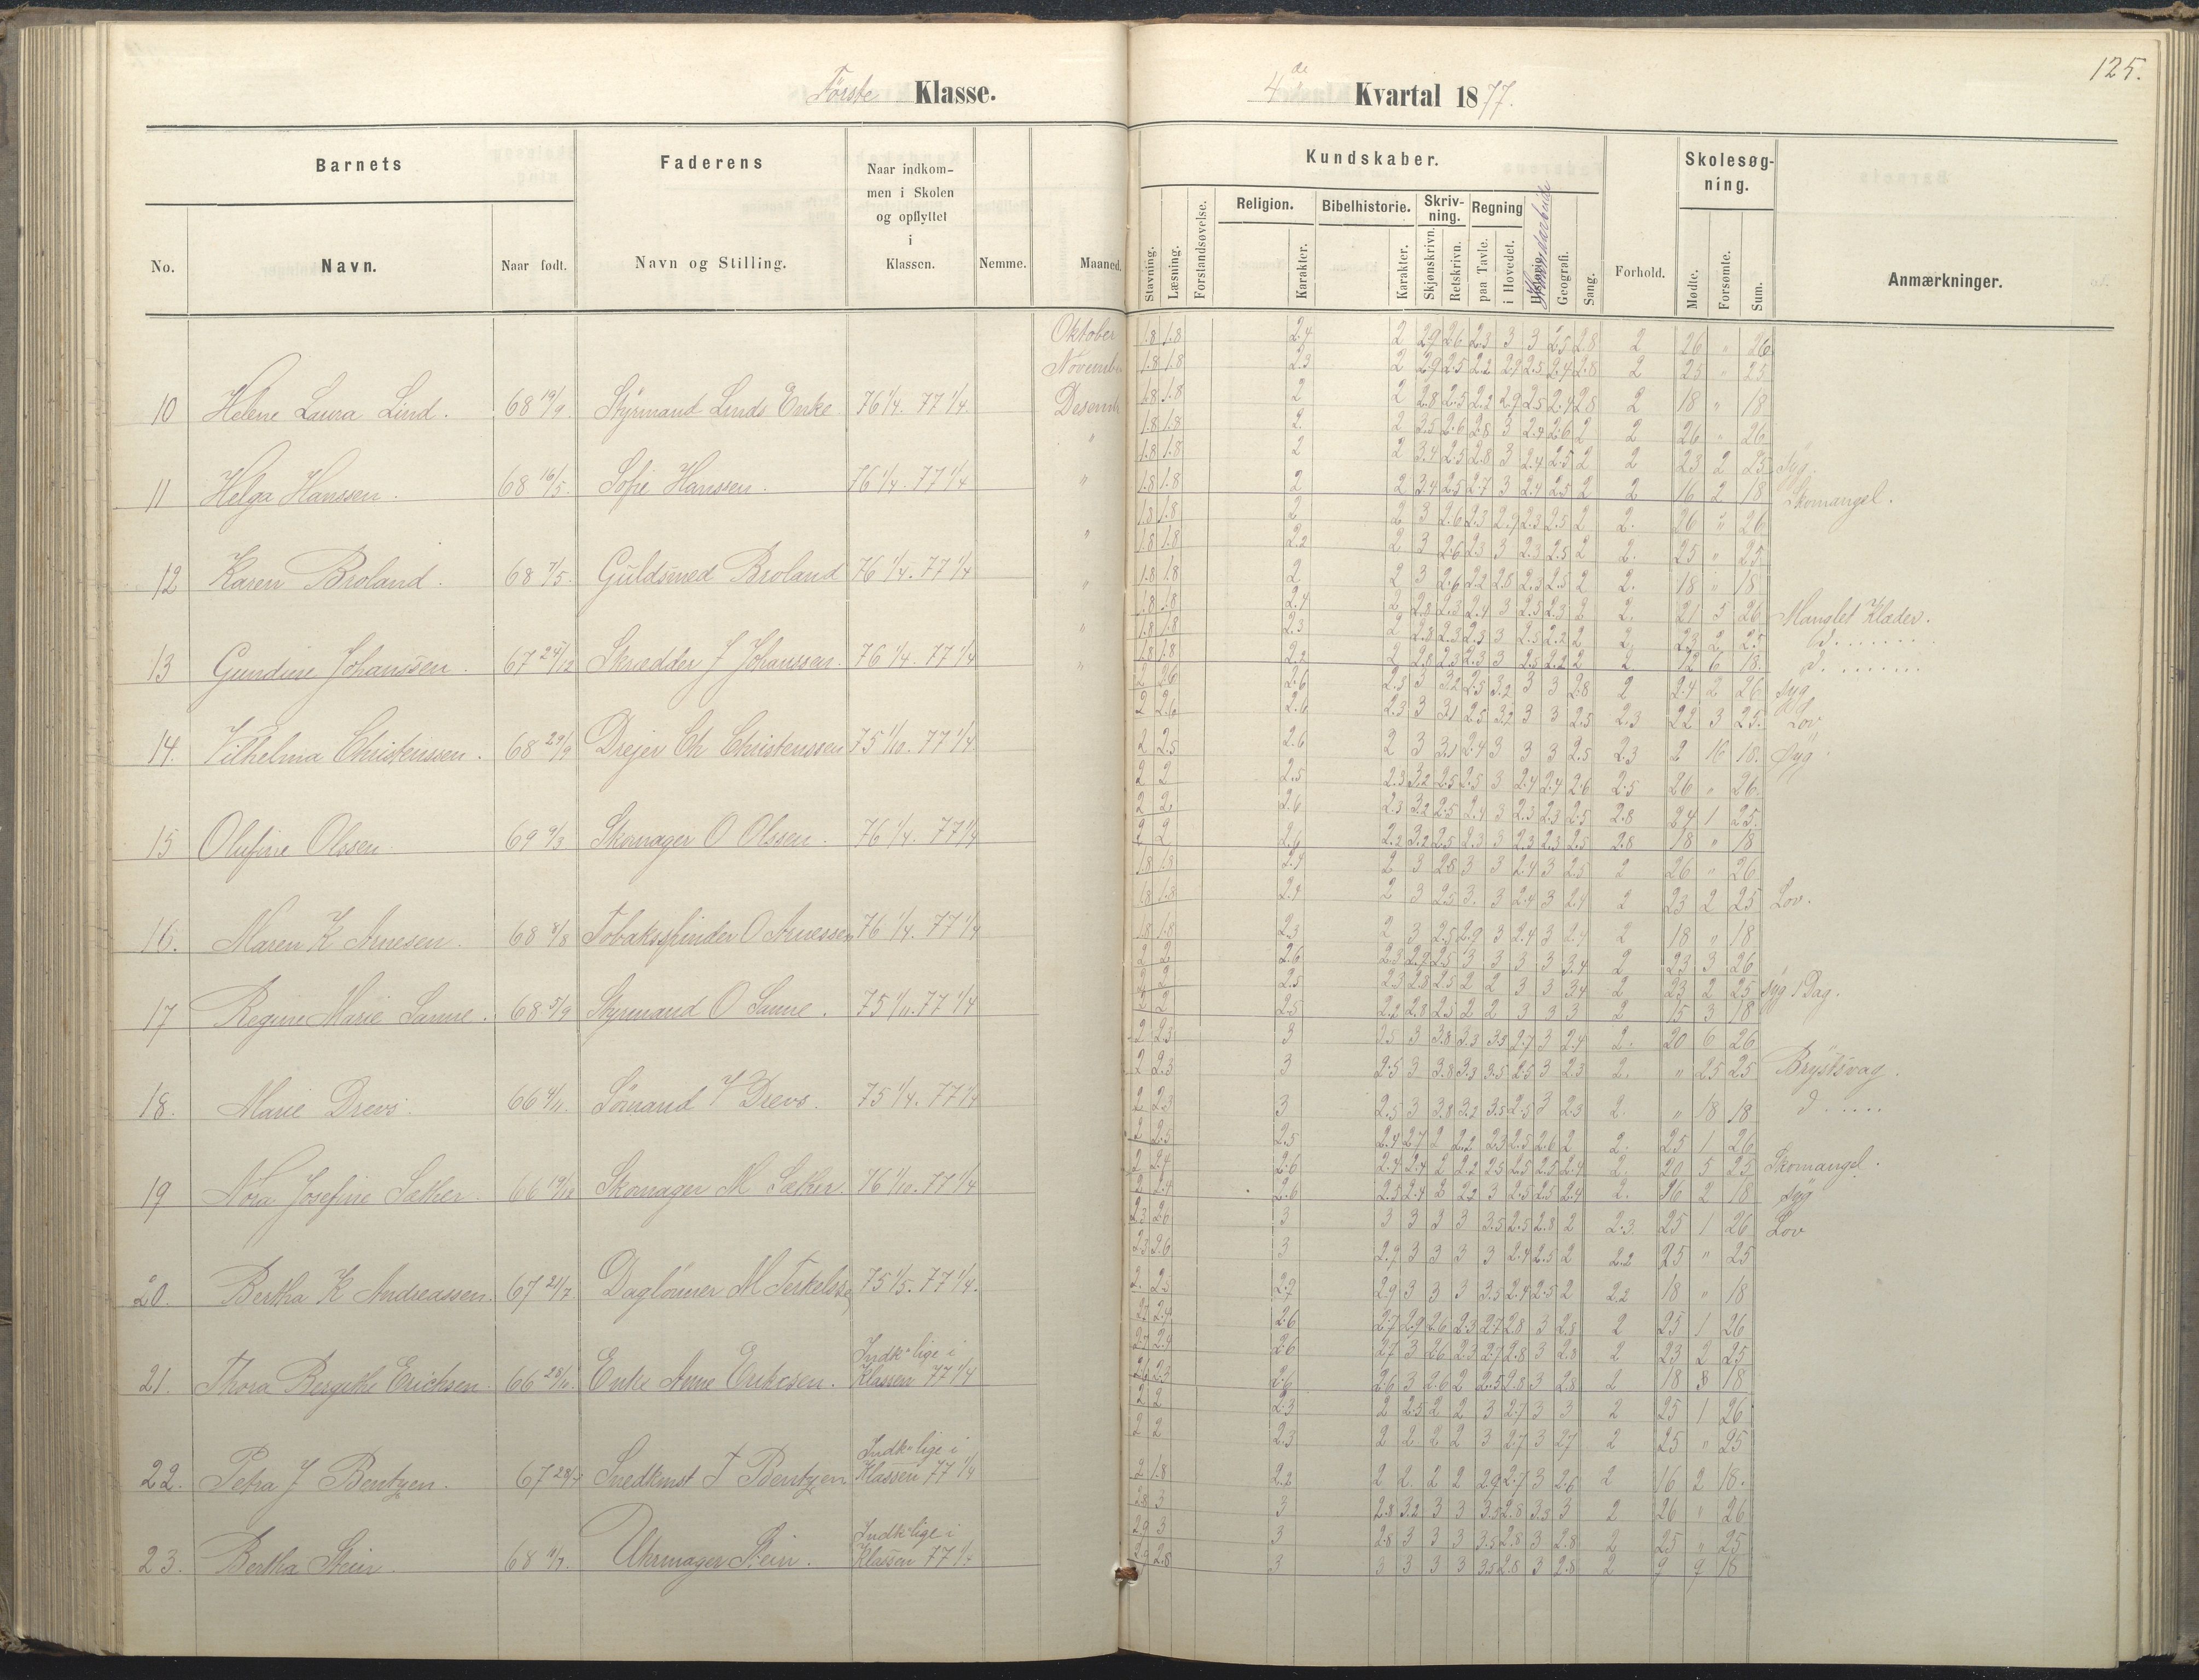 125.
Første Klasse.
4de Kvartal 1877.
Barnets
Faderens
Naar indkom-
men i Skolen
og opflyttet
i
Klassen.
Kundskaber.
Skolesøg-
ning.
No. Navn. Naar født. Navn og Stilling. Nemme. Maaned.
Stavning. Læsning. Forstandsøvelse. Religion. Karakter. Bibelhistorie. Karakter. Skriv-
ning. Skjønskrivn. Retskrivn. Regning paa Tavle. i Hovedet. Haandarbeide Geografi. Sang. Forhold. Møde. Forsømte. Sum. Anmærkninger.
Oktober 1.8 1.8 2.4 2 2.9 2.6 2.3 3 3 2.5 2.8 2 26 " 26
November 1.8 1.8 2.3 2 2.9 2.5 2.2 2.9 2.5 2.4 2.8 2 25 " 25
10 Helene Laura Lind. 68 19/9 Styrmand Linds Enke 76 1/4. 77 1/4. Desemb 1.8 1.8 2 2 2.8 2.5 2.2 2.9 2.5 2.4 2.8 2 18 " 18
1.8 1.8 2. 2 3.5 2.6 2.8 3 2.4 2.6 2 2 26 " 26
1.8 1.8 2 2 3.4 2.5 2.8 3 2.4 2.5 2 2 23 2 25 Syg.
11 Helga Hanssen. 68 16/5. Sofie Hanssen. 76 1/4. 77 1/4 " 1.8 1.8 2 2 3.4 2.5 2.7 3 2.4 2.5 2 2 16 2 18 Skomangel.
1.8 1.8 2 2 3 2.6 2.3 2.9 2.3 2.5 2 2. 26 " 26
1.8 1.8 2.2 2 3 2.6 2.3 3 2.3 2.5 2 2. 25 " 25
12 Karen Broland. 68 7/5. Guldsmed Broland 76 1/4. 77 1/4 " 1.8 1.8 2 2 3 2.6 2.2 2.8 2.3 2.5 2 2. 18 " 18
1.8 1.8 2.4 2 2.8 2.3 2.4 3 2.5 2.3 2 2. 21 5 26 Manglet Klæder.
1.8 1.8 2.3 2 2.8 2.3 2.3 3 2.5 2.2 2 2. 23 2 25 d. . . . . . .
13 Gundine Johanssen. 67 24/12 Skrædder J Johanssen. 76 1/4. 77 1/4 " 1.8 1.8 2.2 2 2.8 2.3 2.3 3 2.5 2.2 2 2 12 6 18. d. . . . . . . .
2 2.6 2.6 2.3 3 3.2 2.5 3.2 3 3 2.8 2 24 2 26 Syg
2 2.6 2.6 2.3 3 3.1 2.5 3.2 3 3 2.5 2.3 22 3 25. Lov
14. Vilhelma Christenssen. 68 29/9 Drejer Ch Christenssen 75 1/10. 77 1/4 2 2.5 2.6 2 3 3.1 2.4 3 3 3 2.5 2.3 2 16 18. Syg.
2 2 2.5 2.3 3.2 2.5 2.5 3 2.4 2.4 2.6 2.5 26 " 26.
2 2. 2.6 2.3 3.2 2.5 2.4 3 2.3 2.3 2.5 2.8 24 1 25.
15 Olufine Olssen. 69 9/3 Skomager O Olssen. 76 1/4. 77 1/4 2 2 2.6 2.2 3.2 2.5 2.3 3 2.3 2.3 2.5 2.8 18 " 18
1.8 1.8 2.4 2 3 2.8 3 3 2.4 3 2.5 2 26 " 26
1.8 1.8 2.4 2 3 2.5 3. 3 2.4 3 2.4 2 23 2 25 Lov.
16. Maren K Arnesen. 68 8/8 Tobaksspinder O Arnessen 76 1/4. 77 1/4 1.8 1.8 2.3 2 3 2.5 2.9 3 2.4 3 2.4 2 18 " 18
2 2 2.6 2.3 2.9 2.5 3 3 3 3 3.4 2 23 3 26
2 2 2.5 2.3 2.8 2.5 2 2 3 3 3.4 2 23 2 25 Syg 1 Dag.
17 Regine Marie Sanne. 68 5/9 Styrmand O Sanne. 75 1/11. 77 1/4 2 2 2.5 2.2 2.8 2.5 2 2 3 3 3 2 15 3 18
2 2.3 3 2.5 3 3.8 3.3 3.5 2.7 3 2.4 2. 20 6 26
2 2.3 3 2.5 3 3.8 3.3 3.5 2.5 3 2.3 2. " 25 25 Brystsvag.
18. Marie Drevs. 66 4/11. Sømand Drevs. 75 1/4. 77 1/4 2 2.3 3 2.5 3 3.8 3.2 3.5 2.5 3 2.3 2. " 18 18 d . . . . .
2 2.5 2.5 2.4 2.7 2 2.2 2.3 2.5 2.6 2 2. 25 1 26
2 2.4 2.6 2.4 2.4 2 2.2 2.5 2.5 2.5 2.4 2. 20 5 25 Skomangel.
19 Nora Josefine Sæther. 66 19/12 Skomager M Sæther. 76 1/10. 77 1/4 2 2.4 2.6 2.5 2.4 2 2.2 3 2.5 2.5 2.4 2. 16 2 18 Syg
2.3 2.6 3 3 3 3 3 3.5 2.5 2.8 2 2.3. 25 1 26 Lov
2.3 2.6 3 2.9 3 3 3 3 2.4 2.5 2 2.2 25 " 25
20. Bertha K Andreassen. 67 21/7 Daglønner M Terkelss. 75 1/5. 77 1/4. 2. 2.5 2.7 2.9 3 3 3 3.5 2.4 2.5 2 2.2 18 " 18
2.7 2.4 2.6 2.7 2.9 2.6 2.3 2.7 2.8 3 2.8 2 25 1 26
2.7 2.4 2.6 2.7 3 2.6 2.3 2.7 2.8 3 2.8 2 23 2 25
21. Thora Bergithe Ericksen 66 28/11. Enke Anne Eriksen. Indk" lige i
Klassen 77 1/4 2.6 2.3 2.6 2.6 3 2.6 2 2.5 2.8 3 2.8 2 18 18
2 2 2.3 2 2.5 2 2 3 2.7 3 3 2 25 1 26
2 2 2.3 2 2 2 2 3 2.7 3 2.7 2 25 " 25
22. Petra J Bentzen. 67 28/7 Snedkmst T Bentzen Indk" lige i
Klassen 77 1/4 2 1.8 2.2 2 2 2 2 2.9 2.7 3 2.6 2 16 2 18.
2.8 3 3 2.8 3.2 3 3 3.5 2.8 3.5 3 2 26 " 26
2.9 3 3 2.8 3 3 3 3.5 2.8 3 2.8 2 25 " 25
23. Bertha Stein. 68 9/7. Uhrmager Stein. Indk" lige i
Klassen 77 1/4 2.9 2.8 3 3 3 3 3 3.5 2.8 3 2.8 2 9 9 18